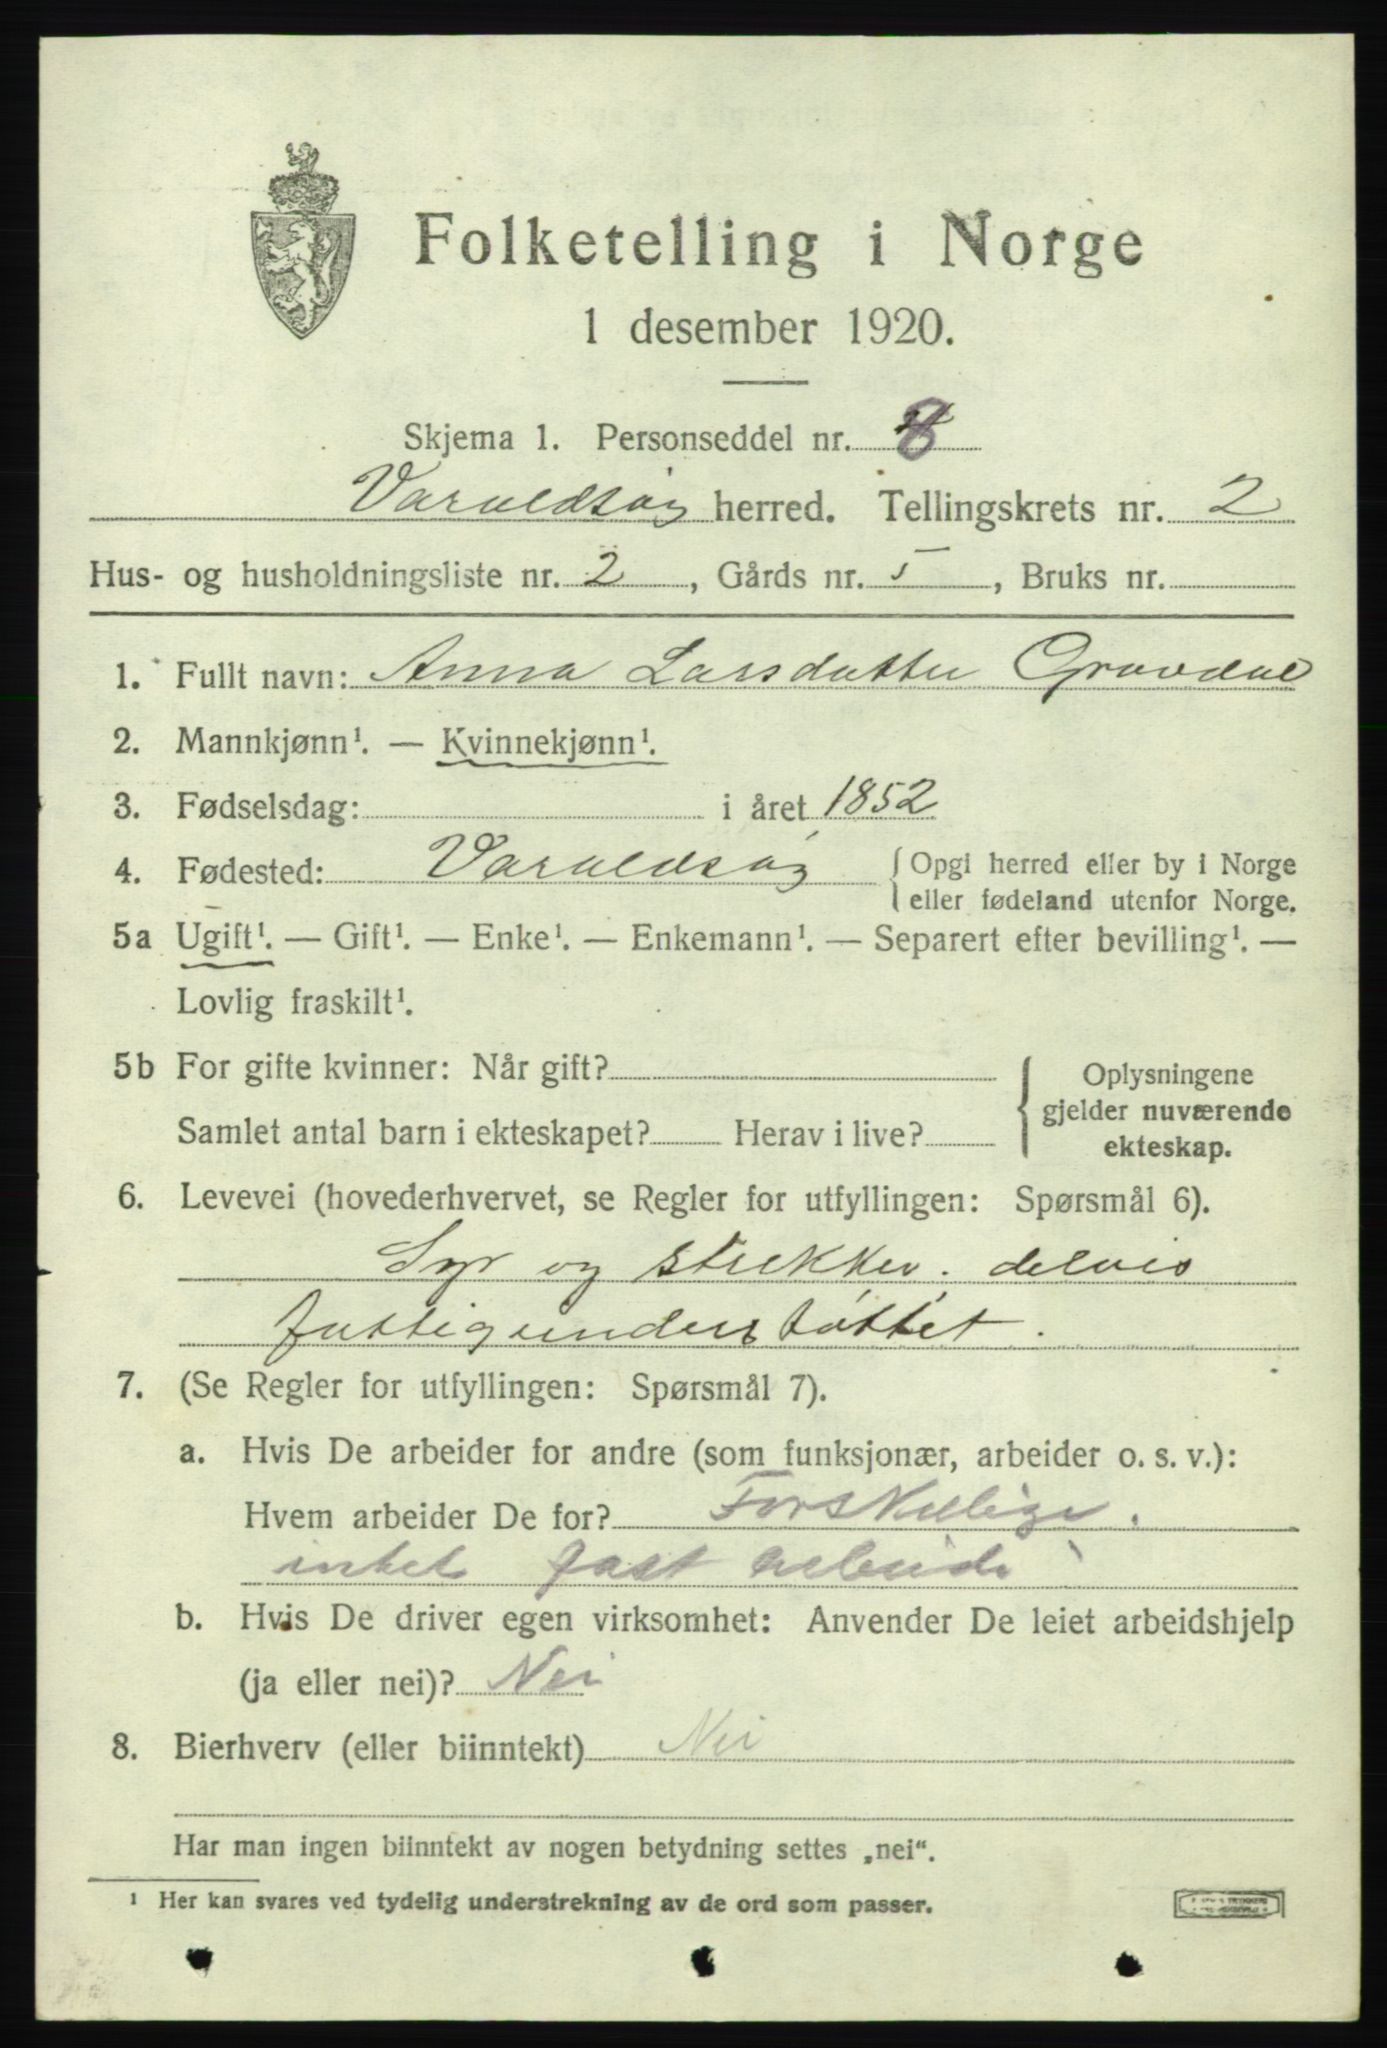 Folketelling i Norge
1 desember 1920.
Skjema 1. Personseddel nr. 8
Varaldsøy herred. Tellingskrets nr. 2
Hus- og husholdningsliste nr. 2, Gårds nr. 5, Bruks nr.
1. Fullt navn: Anna Larsdatter Gravdal
2. Mannkjønn¹. — Kvinnekjønn¹.
3. Fødselsdag: i året 1852
4. Fødested: Varaldsøy { Opgi herred eller by i Norge
eller fødeland utenfor Norge.
5a Ugift¹. — Gift¹. — Enke¹. — Enkemann¹. — Separert efter bevilling¹. —
Lovlig fraskilt¹.
5b For gifte kvinner: Når gift?
Samlet antal barn i ekteskapet? Herav i live?
Oplysningene
gjelder nuværende
ekteskap.
6. Levevei (hovederhvervet, se Regler for utfyllingen: Spørsmål 6).
Syr og strikker. delvis
fattigunderstøttet.
7. (Se Regler for utfyllingen: Spørsmål 7).
a. Hvis De arbeider for andre (som funksjonær, arbeider o. s. v.):
Hvem arbeider De for? Forskellige.
intet fast arbeide
b. Hvis De driver egen virksomhet: Anvender De leiet arbeidshjelp
(ja eller nei)? Nei
8. Bierhverv (eller biinntekt) Nei
Har man ingen biinntekt av nogen betydning settes „nei“.
¹ Her kan svares ved tydelig understrekning av de ord som passer.